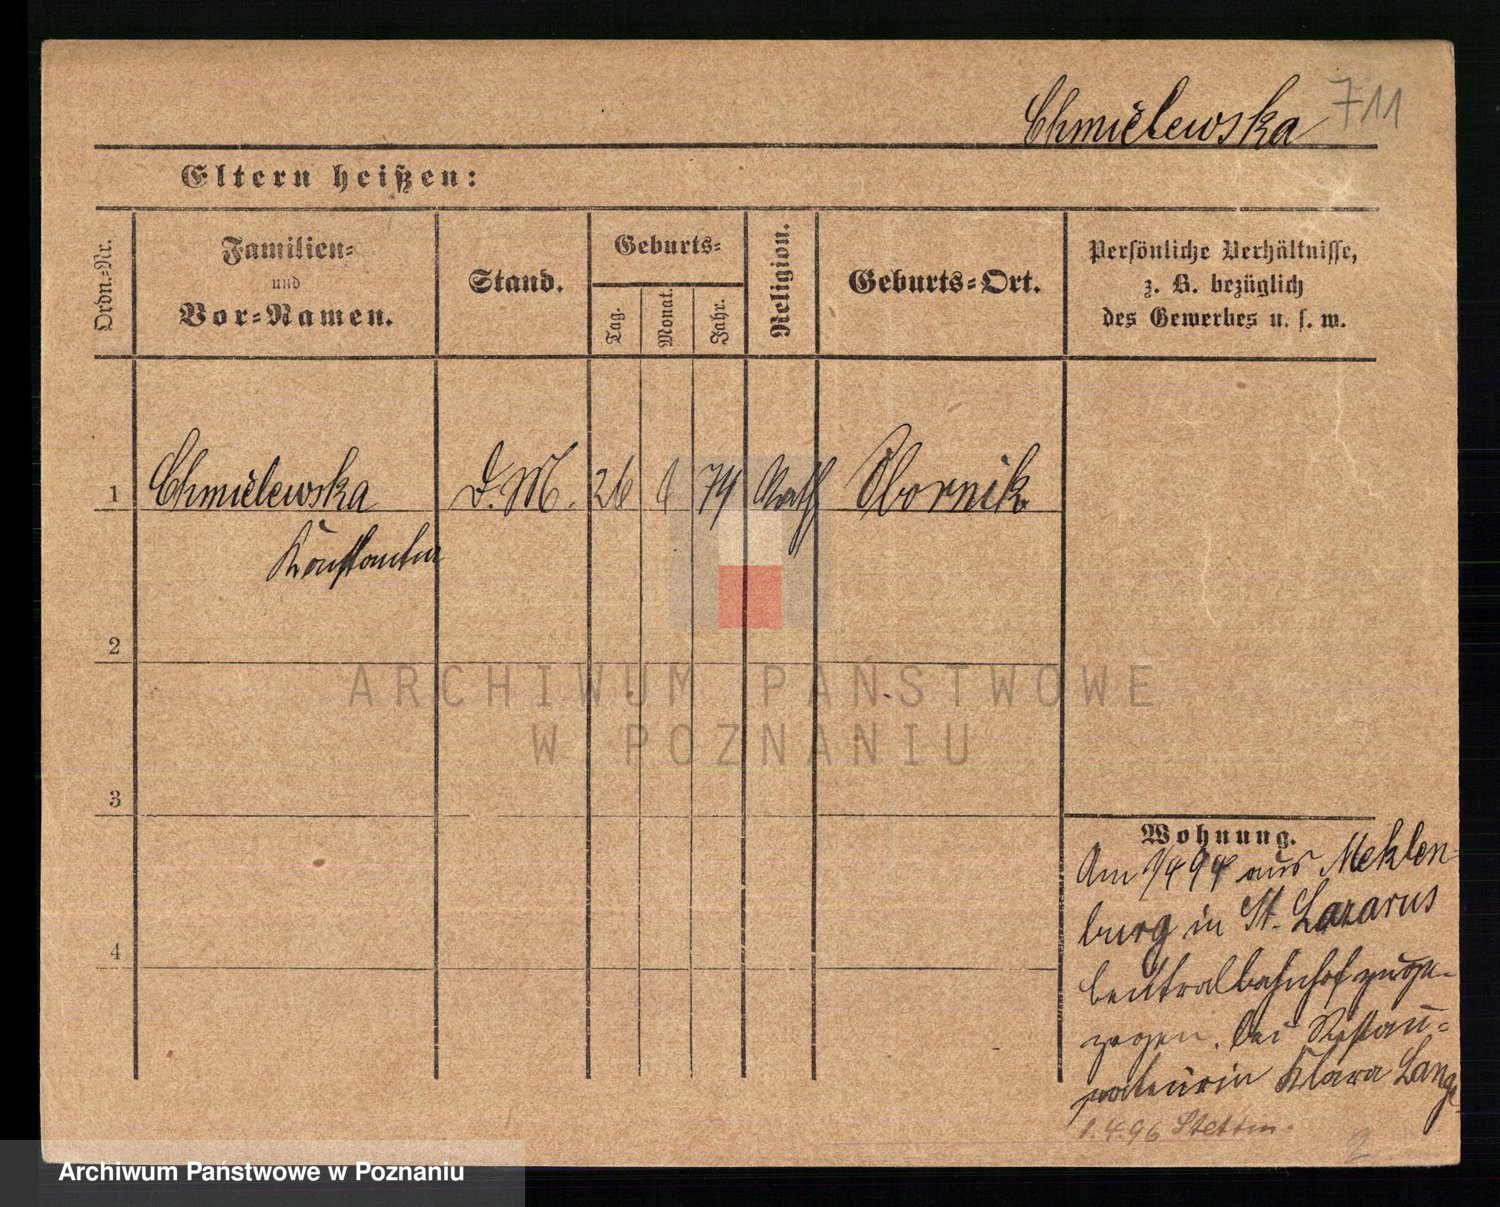 Chmielewska 711
Eltern heißen:
Ordn.-Nr.
Familien-
und
Vor-Namen.
Stand.
Geburts-
Tag.
Monat.
Jahr.
Religion.
Geburts-Ort.
Persönliche Verhältnisse,
z. B. bezüglich
des Gewerbes u. s. w.
1 Chmielewska D. M. 26 74 Kath Obornik
2
3
4
ARCHIWUM PAŃSTWOWE
W POZNANIU
Wohnung.
Am 1/4 94 aus Meklen-
burg in St. Lazarus
Centralbahnhof zuge-
zogen. bei Restau-
rateurin Klara Lange
1.4.96 Stettin.
2
Archiwum Państwowe w Poznaniu